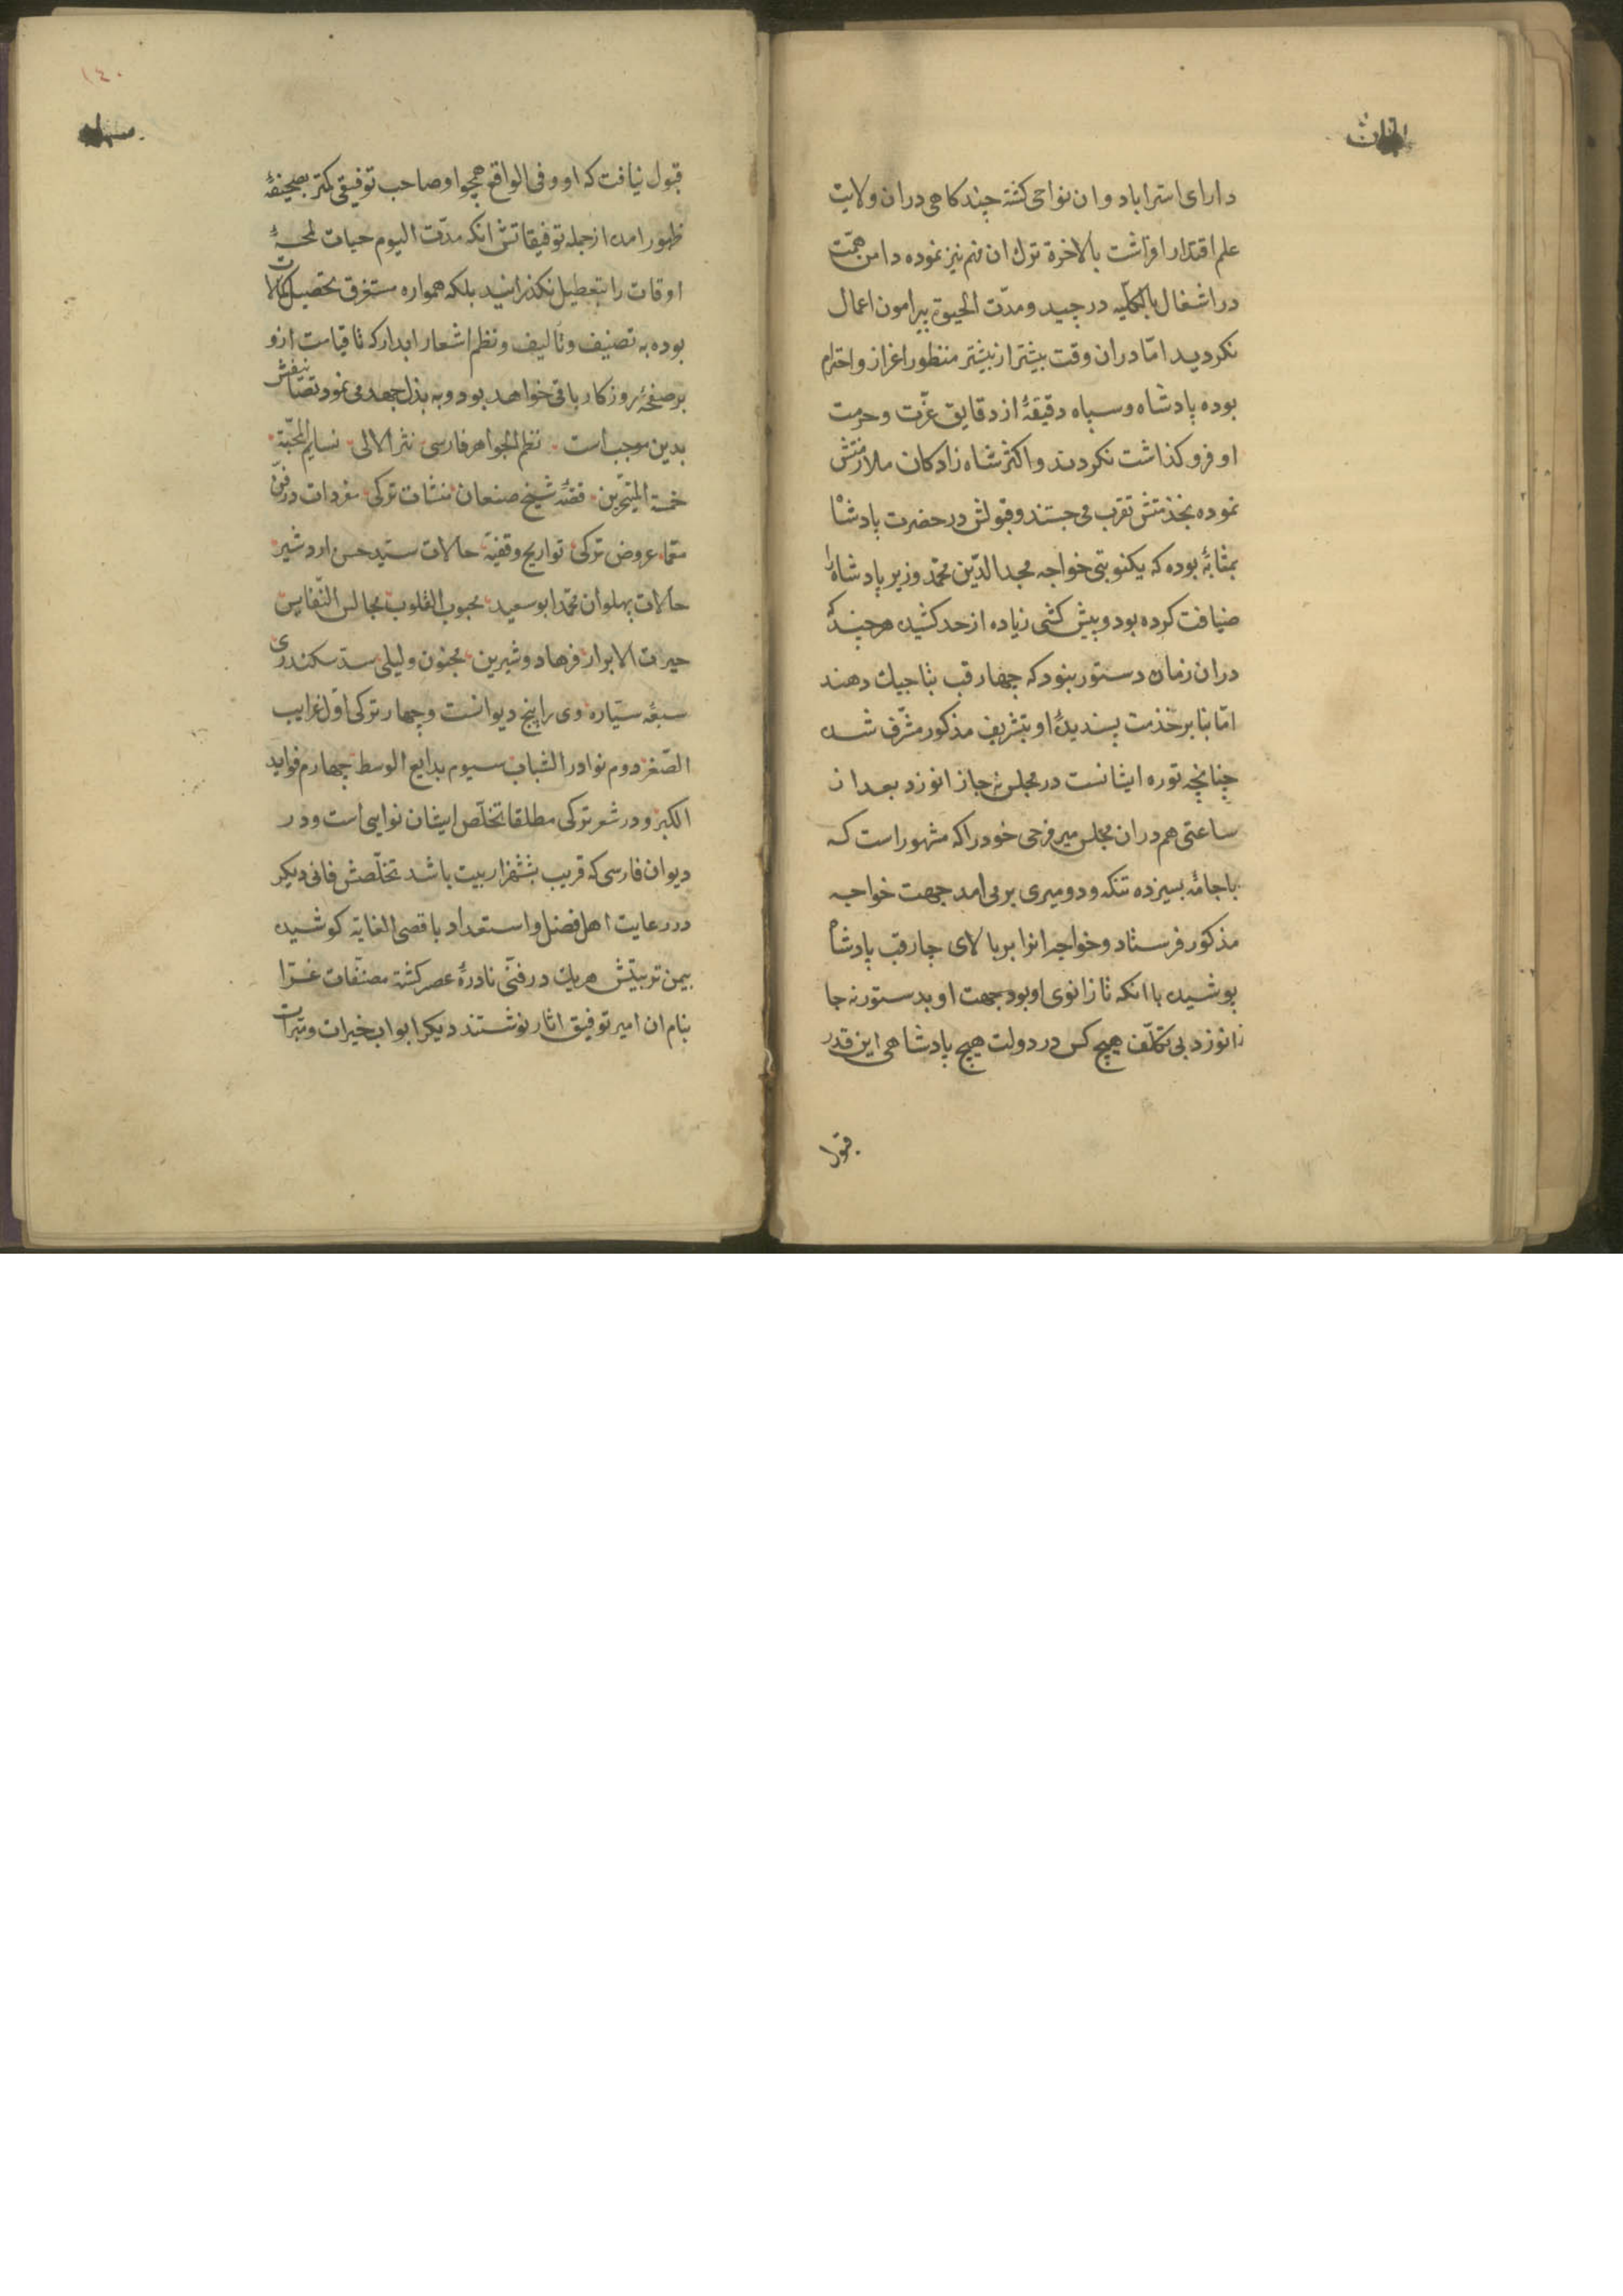 دارای استراباد و ان نواحی کشته چند کاهی دران ولایت
علم اقتدار افراشت بالاخرة ترك ان مهم نیز نموده دامن همّت
در اشغال بالکلّیه درچید و مدّت الحیوة پیرامون اعمال
نکردید امّا دران وقت بیشتر از بیشتر منظور اغراز و احترام
بوده پادشاه و سپاه دقیقهٔ از دقایق عزّت و حرمت
او فروکذاشت نکردند و اکثر شاه زادکان ملازمتش
نموده بخدمتش تقرب می جستند و قبولش در حضرت پادشاه
بمثابهٔ بوده که یکنوبتی خواجه مجد الدّین محمّد وزیر پادشاه را
ضیافت کرده بود و پیش کشی زیاده از حد کشیده هرچند که
دران زمان دستور بنود که چهارقب بتاجیك دهند
امّا بنا بر خدمت پسندیدهٔ او بتشریف مذکور مشرّف شده
چنانچه توره ایشانست در مجلس نه جا زانو زد بعد از
ساعتی هم دران مجلس میر فرجی خود را که مشهور است که
باجامهٔ بسیزده تنکه و دو میری بر می امد جهت خواجه
مذکور فرستاد و خواجه انرا بر بالای چارقب پادشاه
پوشیده با انکه تا زانوی او بود جهت او بدستور نه جا
زانو زد بی تکلّف هیچ کس در دولت هیچ پادشاهی این قدر
قبول
١٤٠
قبول نیافت که او و فی الواقع همچو او صاحب توفیقی کمتر بصحیفهٔ
ظهور امده از جمله توفیقاتش انکه مدّت الیوم حیات لمحهٔ
اوقات را بتعطیل نکذرانید بلکه همواره مستغرق تحصیل کمالات
بوده به تصنیف و تالیف و نظم اشعار ابدار که تا قیامت ازو
بر صفحهٔ روزکار باقی خواهد بود و به بذل جهد می نمود تصانیفش
بدین موجب است نظم الجواهر فارسی نثر الالی نسایم المحبّة
خمسة المتحیّرین قصّهٔ شیخ صنعان منشات ترکی مفردات در فنّ
معمّا عروض ترکی تواریخ وقفیّه حالات سیّد حسن اردشیر
حالات پهلوان محمّد ابو سعید محبوب القلوب مجالس النّفایس
حیرت الابرار فرهاد و شیرین مجنون و لیلی سدّ سکندری
سبعهٔ سیّاره وی را پنج دیوانست و چهار ترکی اوّل غرایب
الصّغر دوم نوادر الشباب سیوم بدایع الوسط چهارم فواید
الکبر و در شعر ترکی مطلقا تخلّص ایشان نوایی است و در
دیوان فارسی که قریب بششهزار بیت باشد تخلّصش فانی دیکر
در رعایت اهل فضل و استعداد باقصی الغایة کوشیده
بیمن تربیتش هریك در فنّی نادرهٔ عصر کشته مصنّفات غرّا
بنام ان امیر توفیق اثار نوشتند دیکر ابواب خیرات و مبرات